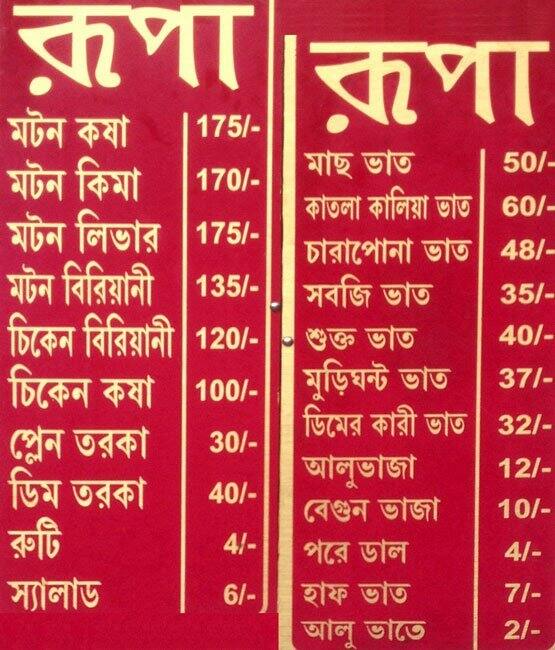 রূপা
মটন কষা 175/-
মটন কিমা 170/-
মটন লিভার 175/-
মটন বিরিয়ানী 135/-
চিকেন বিরিয়ানী 120/-
চিকেন কষা 100/-
প্লেন তরকা 30/-
ডিম তরকা 40/-
রুটি 4/-
স্যালাড 6/-
রূপা
মাছ ভাত 50/-
কাতলা কালিয়া ভাত 60/-
চারাপোনা ভাত 48/-
সবজি ভাত 35/-
শুক্ত ভাত 40/-
মুড়িঘন্ট ভাত 37/-
ডিমের কারী ভাত 32/-
আলুভাজা 12/-
বেগুন ভাজা 10/-
পরে ডাল 4/-
হাফ ভাত 7/-
আলু ভাতে 2/-